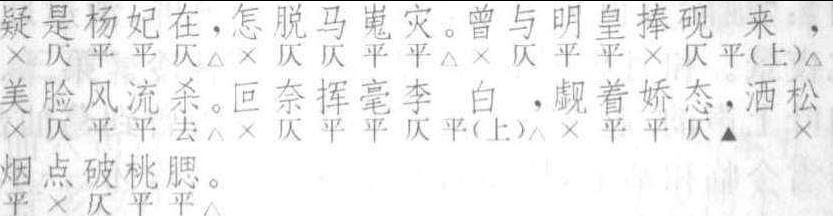 疑是杨妃在，怎脱马嵬灾。曾与明皇捧砚来，
×仄平平仄△×仄仄平平△×仄平平×仄平(上)△
美脸风流杀。叵奈挥毫李白，觑着娇态，洒松
×仄平平去△×仄平平仄平(上)△×平平仄▲×
烟点破桃腮。
平×仄平平△